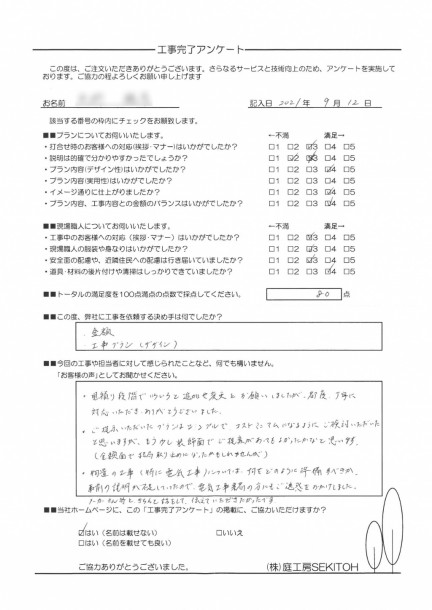 工事完了アンケート
この度は、ご注文いただきありがとうございます。さらなるサービスと技術向上のため、アンケートを実施して
おります。ご協力の程よろしくお願い申し上げます
お名前 記入日 2021年 9月 12日
該当する番号の枠内にチェックをお願致します。
■■プランについてお伺いいたします。 ←不満 満足→
・打合せ時のお客様への対応(挨拶・マナー)はいかがでしたか? □1 □2 ☑3 □4 □5
・説明は的確で分かりやすかったでしょうか? □1 □2 □3 □4 □5
・プラン内容(デザイン性)はいかがでしたか? □1 □2 □3 ☑4 □5
・プラン内容(実用性)はいかがでしたか? □1 □2 □3 ☑4 □5
・イメージ通りに仕上がりましたか? □1 □2 □3 ☑4 □5
・プラン内容、工事内容との金額のバランスはいかがでしたか? □1 □2 □3 ☑4 □5
■■現場職人についてお伺いいたします。 ←不満 満足→
・工事中のお客様への対応(挨拶・マナー)はいかがでしたか? □1 □2 ☑3 □4 □5
・現場職人の服装や身なりはいかがでしたか? □1 □2 ☑3 □4 □5
・安全面の配慮や、近隣住民への配慮は行き届いていましたか? □1 □2 ☑3 □4 □5
・道具・材料の後片付けや清掃はしっかりできていましたか? □1 □2 □3 ☑4 □5
■■トータルの満足度を100点満点の点数で採点してください。 80 点
■■この度、弊社に工事を依頼する決め手は何でしたか?
・金額
・工事プラン(デザイン)
■■今回の工事や担当者に対して感じられたことなど、何でも構いません。
「お客様の声」としてお聞かせください。
・見積り段階でいろいろと追加や変更とお願いしましたが、都度、丁寧に
対応いただきありがとうございました。
・ご提示いただいたプランはシンプルでコスト
と思いますが、もう少し装飾面でご提案があってもよかったかなと思います。
■■当社ホームページに、この「工事完了アンケート」の掲載に、ご協力いただけますか?
☑はい(名前は載せない) □いいえ
□はい(名前を載せても良い)
ご協力ありがとうございました。 (株)庭工房SEKITOH